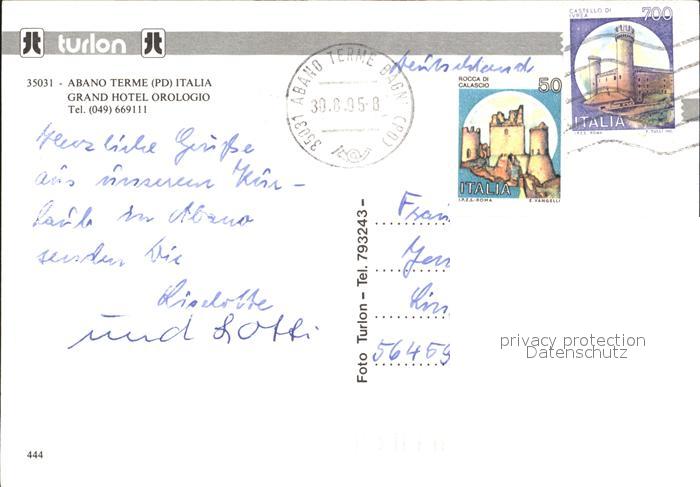 turlon
35031 - ABANO TERME (PD) ITALIA
GRAND HOTEL OROLOGIO
Tel. (049) 669111
35031 ABANO TERME BAGNI (PD)
30.8.95-8
Deutschland
ROCCA DI
CALASCIO
50
ITALIA
I.P.Z.S.-ROMA E. VANGELLI
CASTELLO DI
IVREA
700
ITALIA
I.P.Z.S. ROMA
Herzliche Grüße
aus unserem Kur-
laub in Abano
senden Die
Liselotte
und Lotti
Foto Turlon - Tel. 793243 -
56459
privacy protection
Datenschutz
444